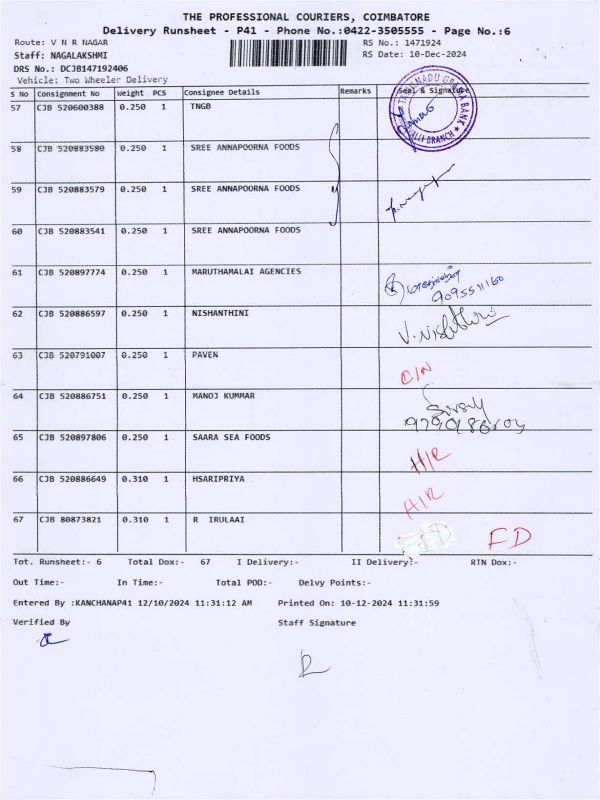 THE PROFESSIONAL COURIERS, COIMBATORE
Delivery Runsheet - P41 - Phone No.:0422-3505555 - Page No.:6
Route: V N R NAGAR
RS No.: 1471924
Staff: NAGALAKSHMI
RS Date: 10-Dec-2024
DRS No.: DCJB147192406
Vehicle: Two Wheeler Delivery
S No Consignment No Weight PCS Consignee Details Remarks Seal & Signature
57 CJB 520600388 0.250 1 TNGB
58 CJB 520883580 0.250 1 SREE ANNAPOORNA FOODS
59 CJB 520883579 0.250 1 SREE ANNAPOORNA FOODS
60 CJB 520883541 0.250 1 SREE ANNAPOORNA FOODS
61 CJB 520897774 0.250 1 MARUTHAMALAI AGENCIES
9095511160
62 CJB 520886597 0.250 1 NISHANTHINI
63 CJB 520791007 0.250 1 PAVEN
64 CJB 520886751 0.250 1 MANOJ KUMMAR
65 CJB 520897806 0.250 1 SAARA SEA FOODS H/R
66 CJB 520886649 0.310 1 HSARIPRIYA
67 CJB 80873821 0.310 1 R IRULAAI FD
Tot. Runsheet:- 6 Total Dox:- 67 I Delivery:- II Delivery:- RTN Dox:-
Out Time:- In Time:- Total POD:- Delvy Points:-
Entered By :KANCHANAP41 12/10/2024 11:31:12 AM Printed On: 10-12-2024 11:31:59
Verified By Staff Signature